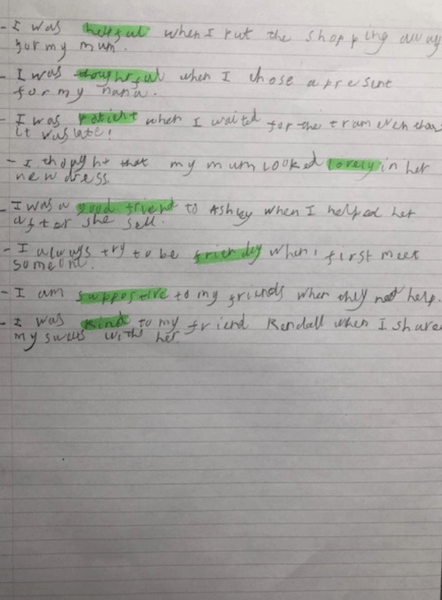 - I was helpful when I put the shopping away
for my mum.
- I was thoughtful when I chose a present
for my nana.
- I was patient when I waited for the tram even tho
it was late!
- I thought that my mum looked lovely in her
new dress
- I was a good friend to Ashley when I helped her
after she fell.
- I always try to be friendly when I first meet
someone.
- I am supportive to my friends when they need help.
- I was kind to my friend Kendall when I share
my sweets with her